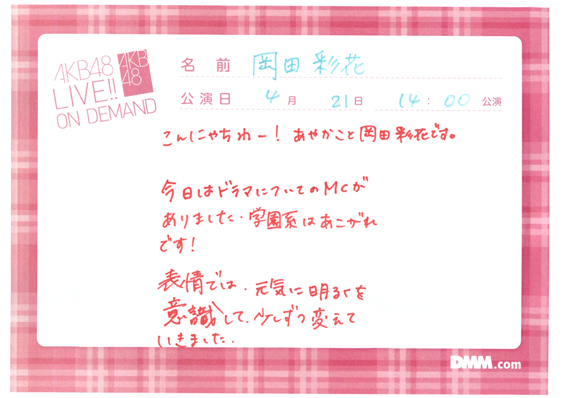 AKB48
LIVE!!
ON DEMAND
AKB
48
名 前 岡田彩花
公演日 4 月 21 日 14 : 00 公演
こんにゃちわー! あやかこと岡田彩花です。
今日はドラマについてのMCが
ありました。学園系はあこがれ
です!
表情では、元気に明るくを
意識して、少しずつ変えて
いきました。
DMM.com